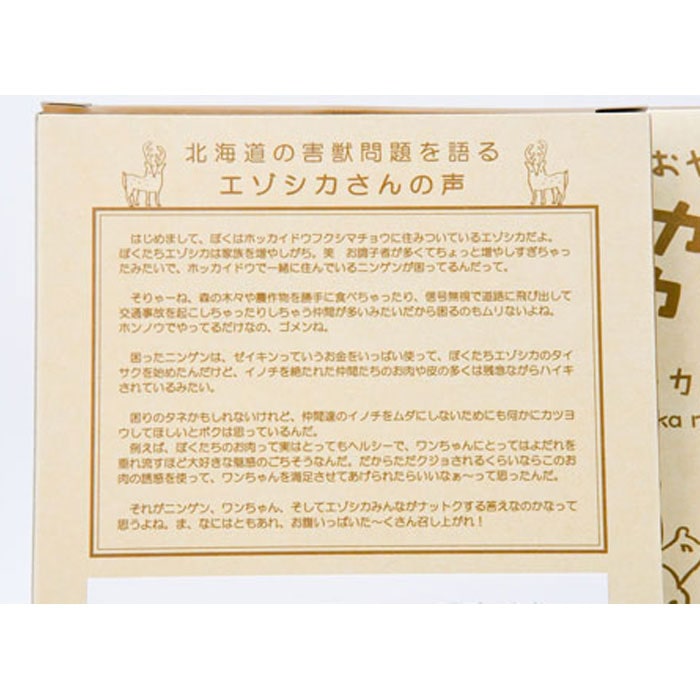 北海道の害獣問題を語る
エゾシカさんの声
はじめまして、ぼくはホッカイドウフクシマチョウに住みついているエゾシカだよ。
ぼくたちエゾシカは家族を増やしがち。笑　お調子者が多くてちょっと増やしすぎちゃっ
たみたいで、ホッカイドウで一緒に住んでいるニンゲンが困ってるんだって。
そりゃーね、森の木々や農作物を勝手に食べちゃったり、信号無視で道路に飛び出して
交通事故を起こしちゃったりしちゃう仲間が多いみたいだから困るのもムリないよね。
ホンノウでやってるだけなの、ゴメンね。
困ったニンゲンは、ゼイキンっていうお金をいっぱい使って、ぼくたちエゾシカのタイ
サクを始めたんだけど、イノチを絶たれた仲間たちのお肉や皮の多くは残念ながらハイキ
されているみたい。
困りのタネかもしれないけれど、仲間達のイノチをムダにしないためにも何かにカツヨ
ウしてほしいとボクは思っているんだ。
例えば、ぼくたちのお肉って実はとってもヘルシーで、ワンちゃんにとってはよだれを
垂れ流すほど大好きな魅惑のごちそうなんだ。だからただクジョされるくらいならこのお
肉の誘惑を使って、ワンちゃんを満足させてあげられたらいいなぁ〜って思ったんだ。
それがニンゲン、ワンちゃん、そしてエゾシカみんながナットクする答えなのかなって
思うよね。ま、なにはともあれ、お腹いっぱいた〜くさん召し上がれ！
おや
カ
ka